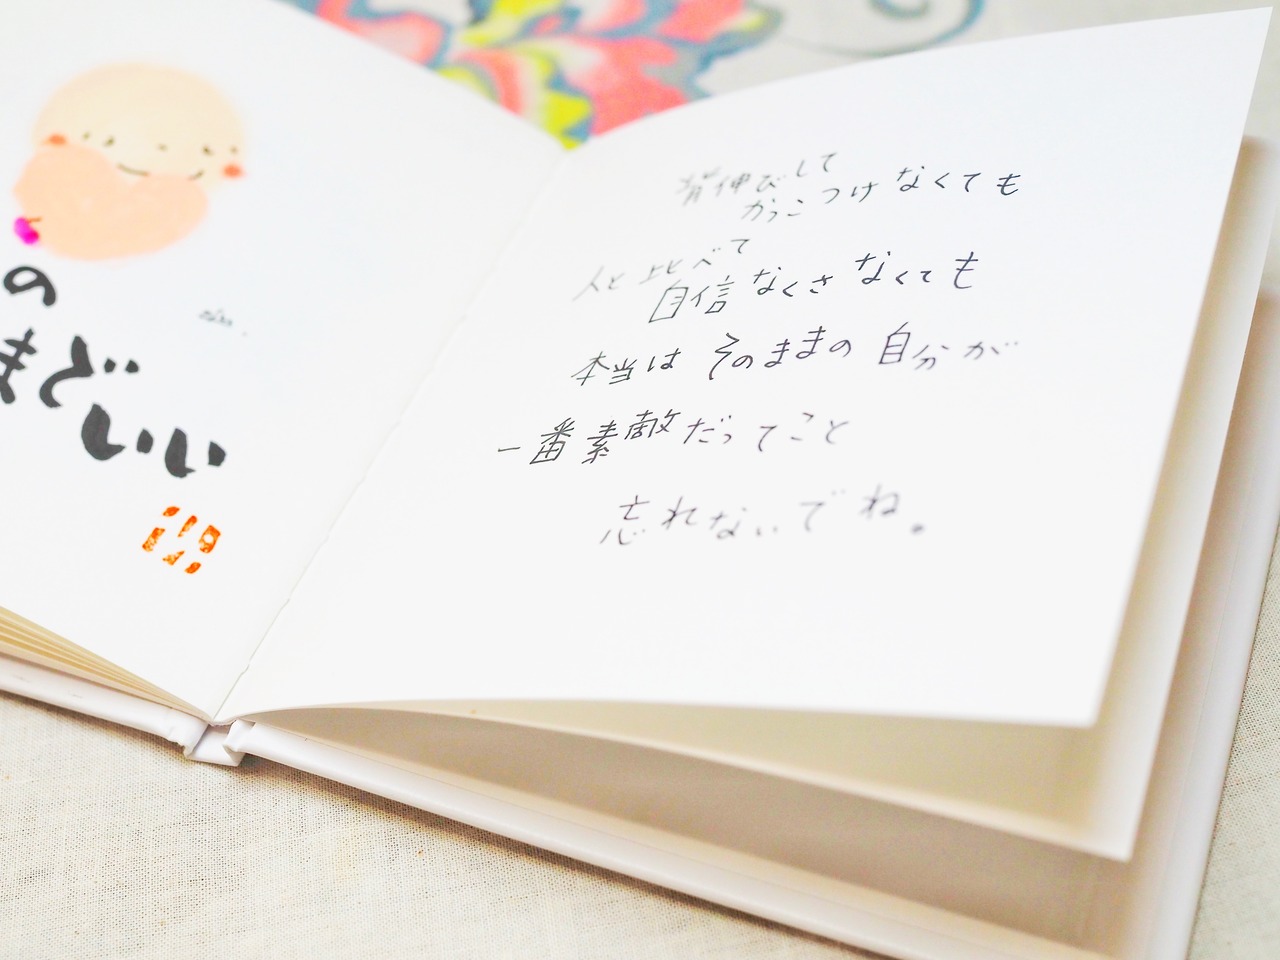 の
まどいい
背伸びして
かっこつけなくても
人と比べて
自信なくさなくても
本当はそのままの自分が
一番素敵だってこと
忘れないでね。